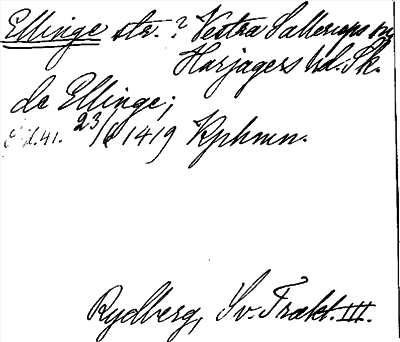 Ellinge str.? Vestra Sallerups sn
Harjagers hd. Sk.
de Ellinge;
23/8 1419 Kphmn.
Rydberg, Sv. Trakt. III.